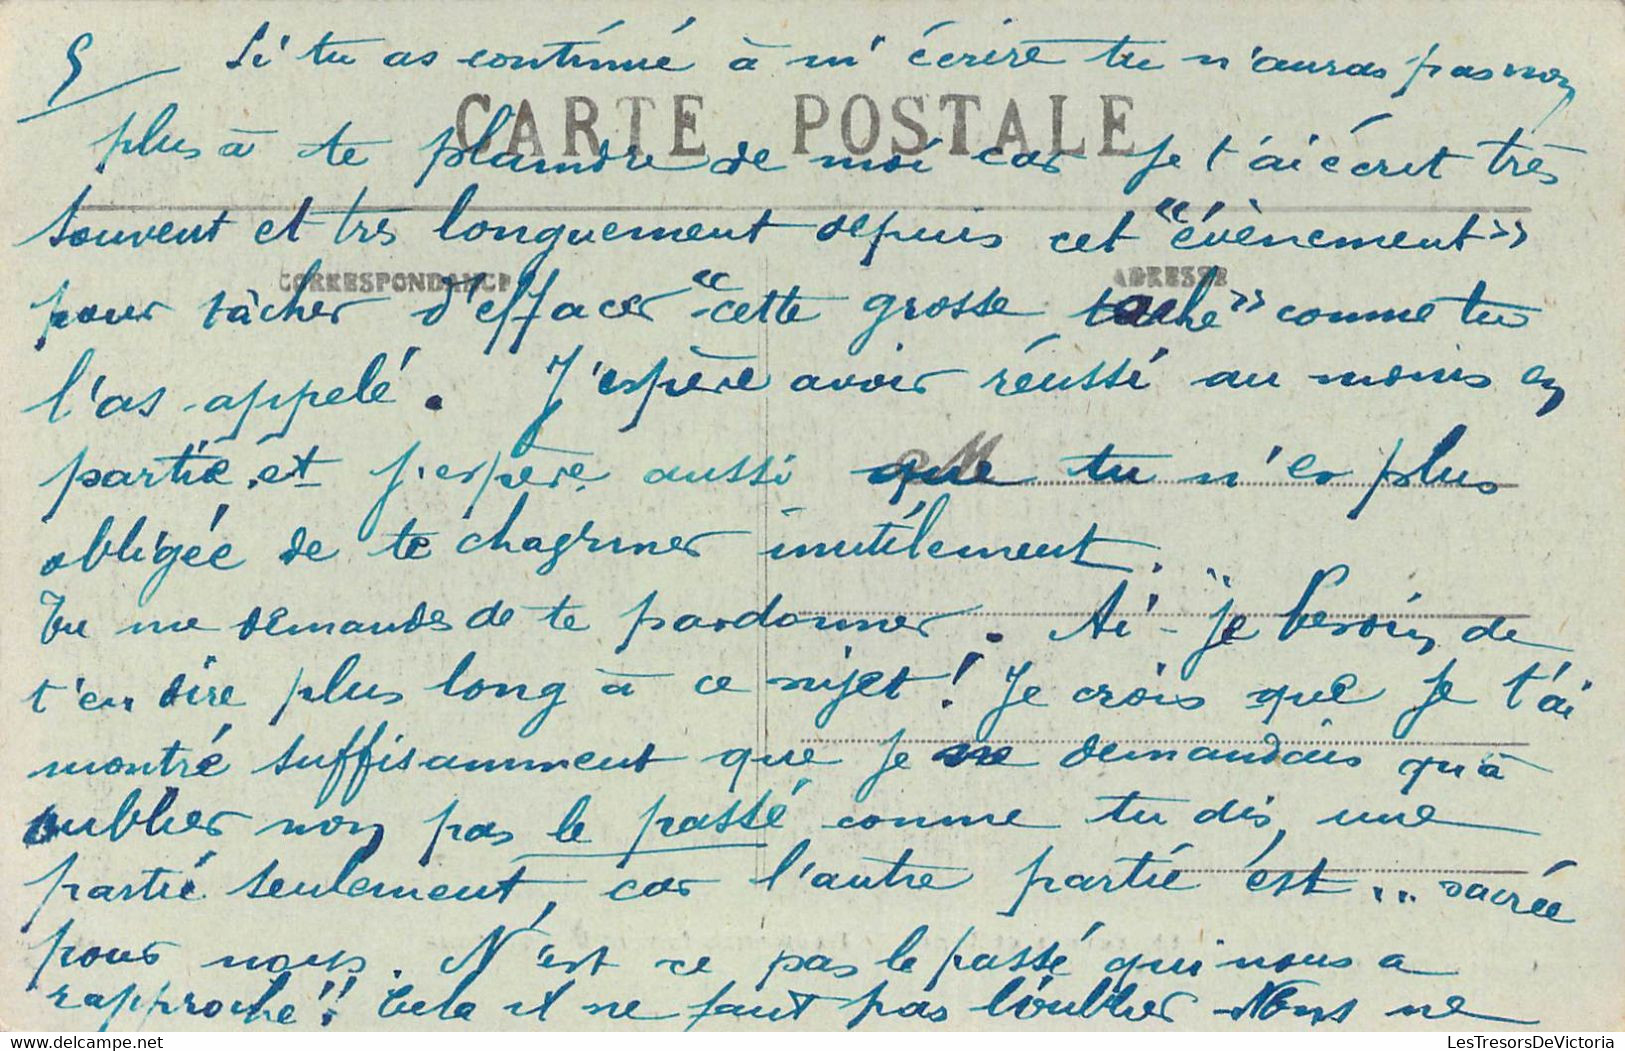 5 Si tu as continué à m'écrire tu n'auras pas non
CARTE POSTALE
plus à te plaindre de moi car je t'ai écrit très
souvent et très longuement depuis cet "évènement"
CORRESPONDANCE ADRESSE
pour tâcher d'effacer "cette grosse tache" comme tu
l'as appelé. J'espère avoir réussi au moins en
partie et j'espère aussi que tu n'es plus
obligée de te chagriner inutilement.
Tu me demandes de te pardonner. Ai-je besoin de
t'en dire plus long à ce sujet! Je crois que je t'ai
montré suffisamment que je ne demandais qu'à
oublier non pas le passé comme tu dis, une
partie seulement, car l'autre partie est... sacrée
pour nous. N'est ce pas le passé qui nous a
rapproché!! Cela il ne faut pas l'oublier Nous ne
LesTresorsDeVictoria
https://www.delcampe.net